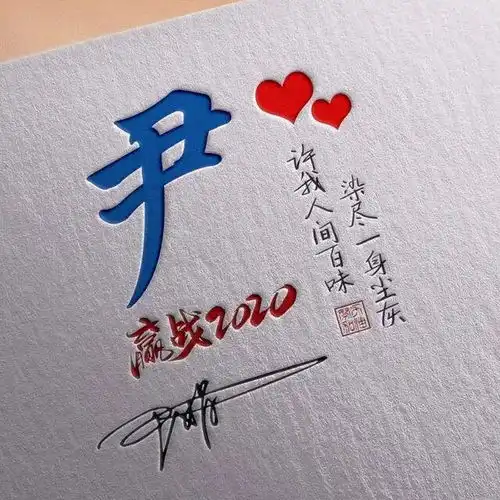 尹
许我人间百味
染尽一身尘灰
赢战2020